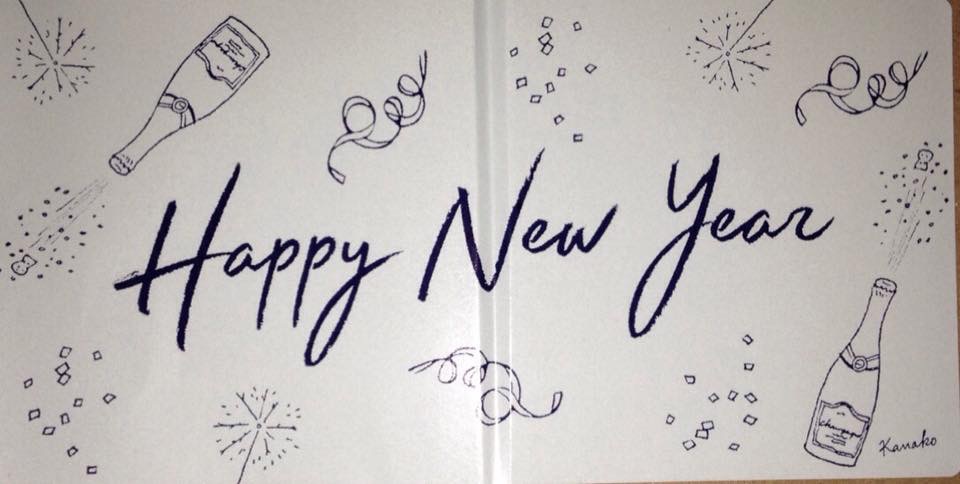 Happy New Year
champagne
Kanako